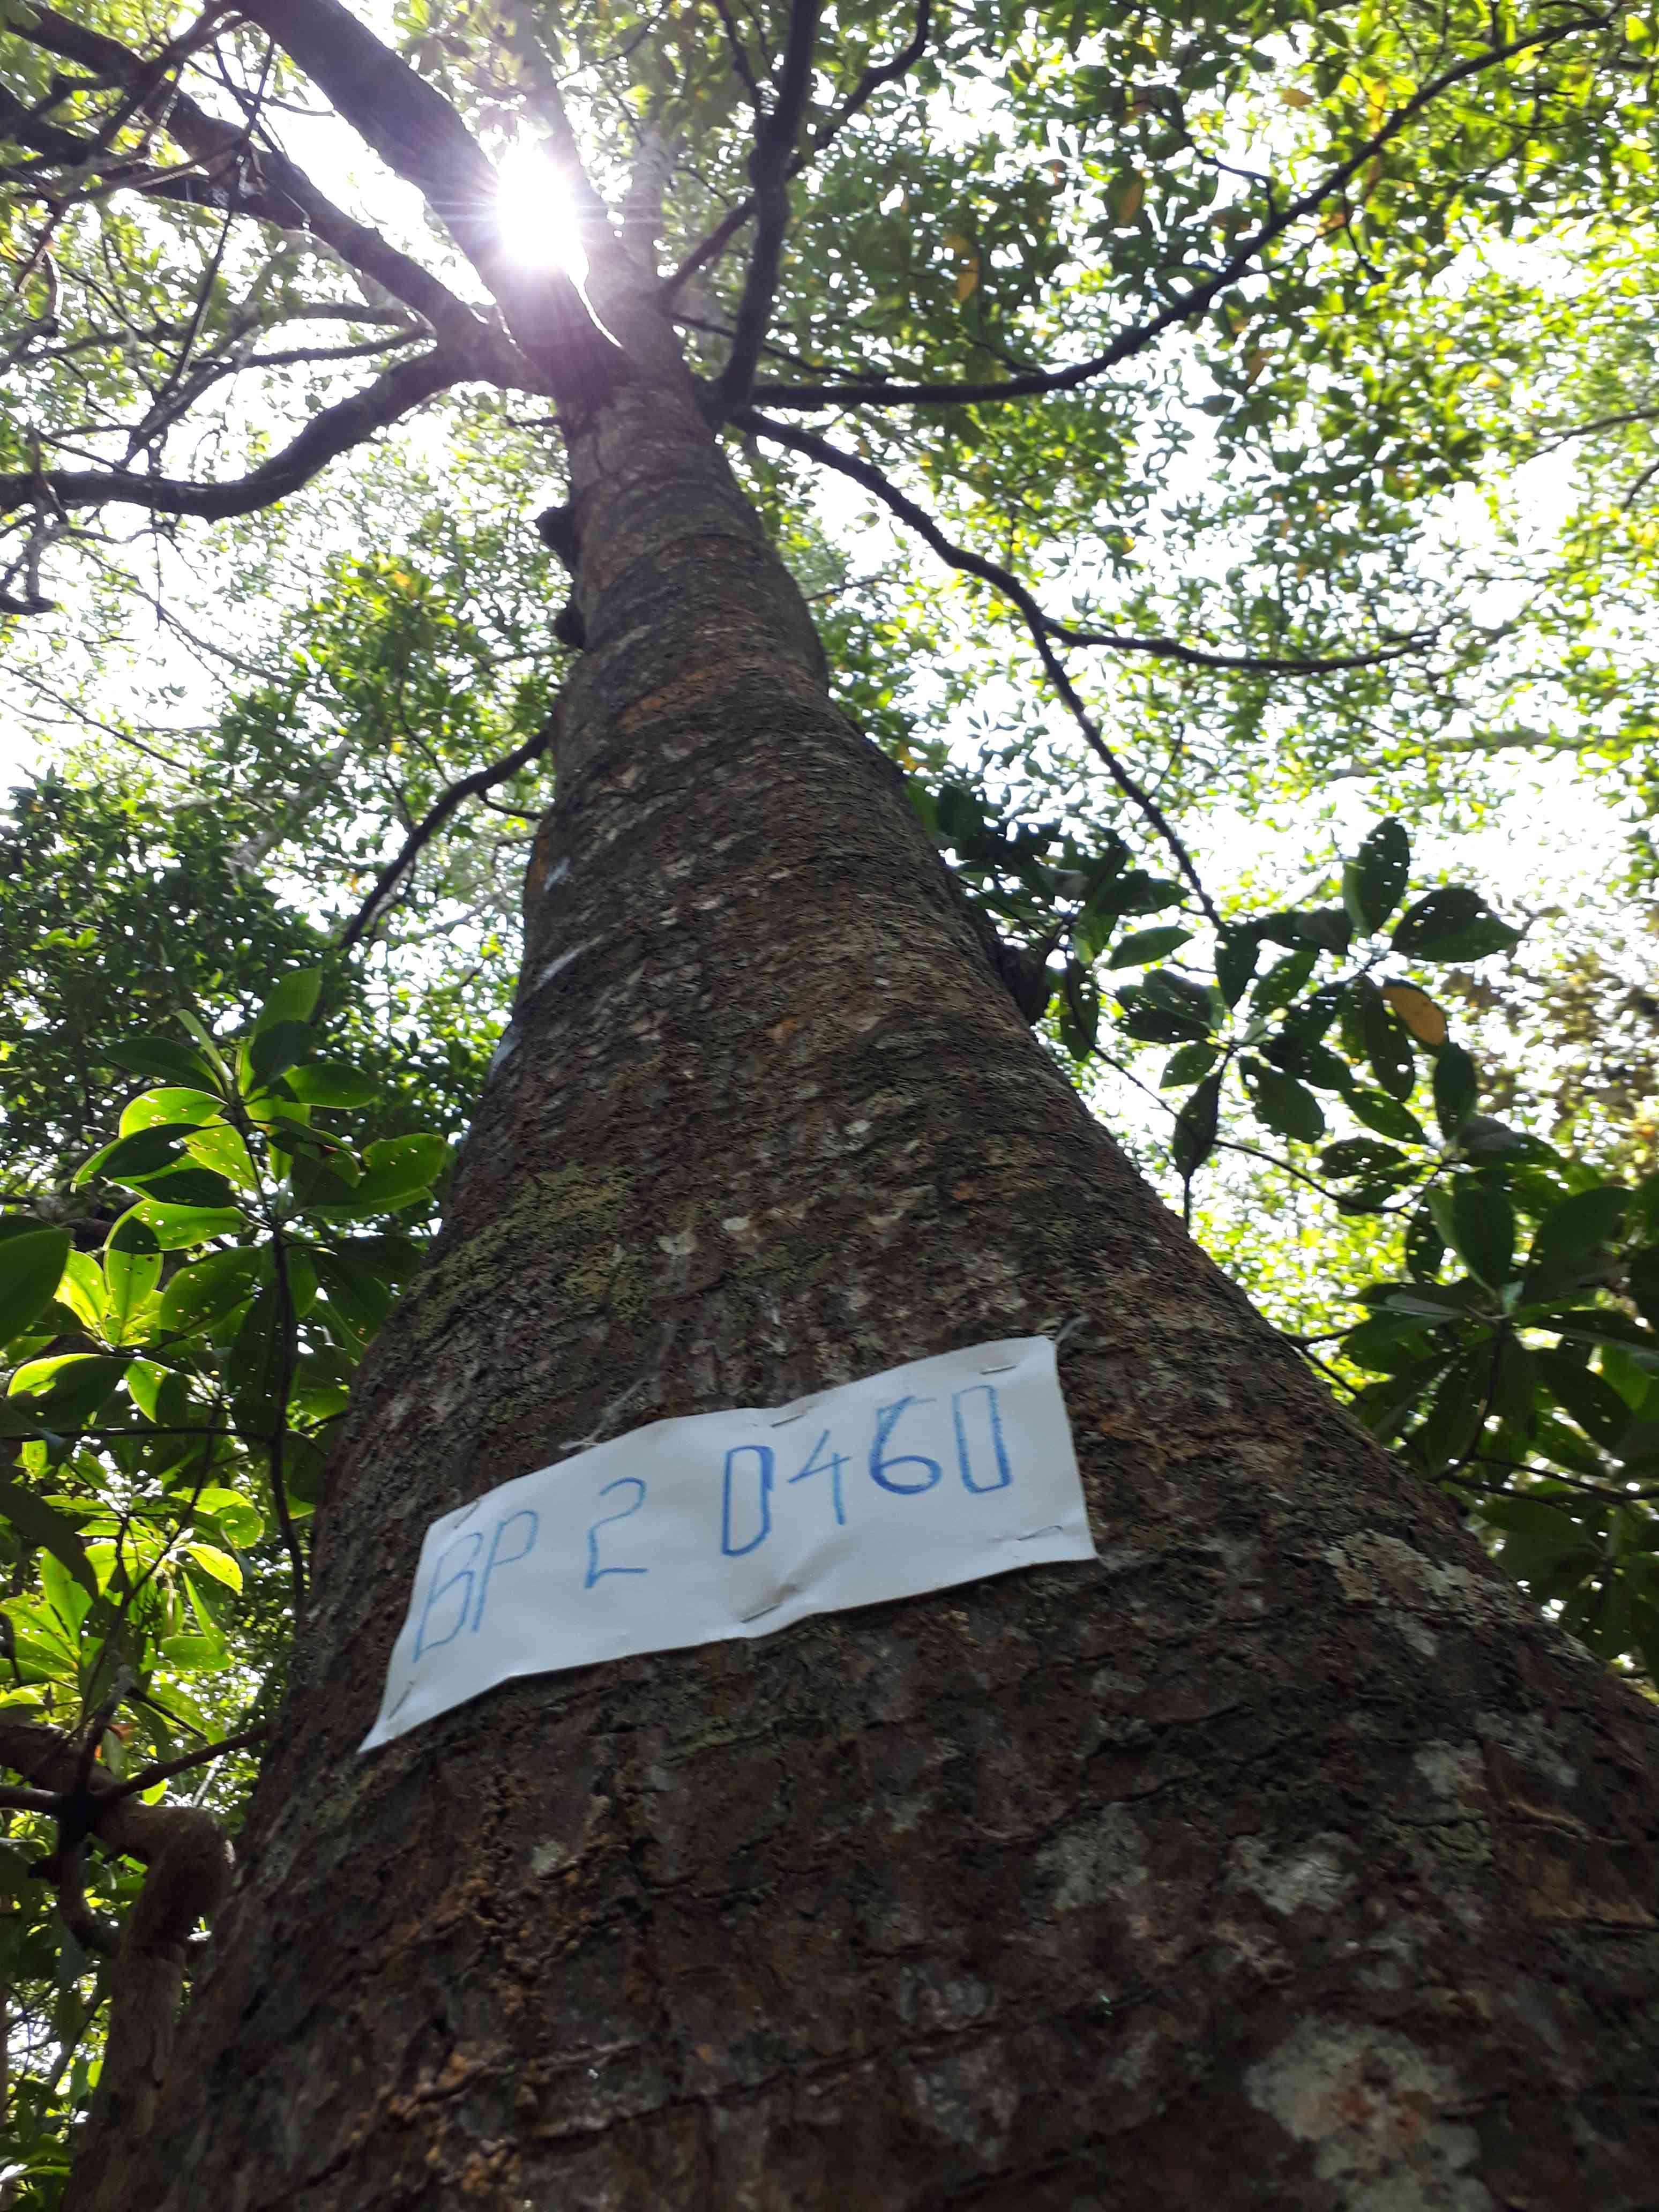 BP 2 0460